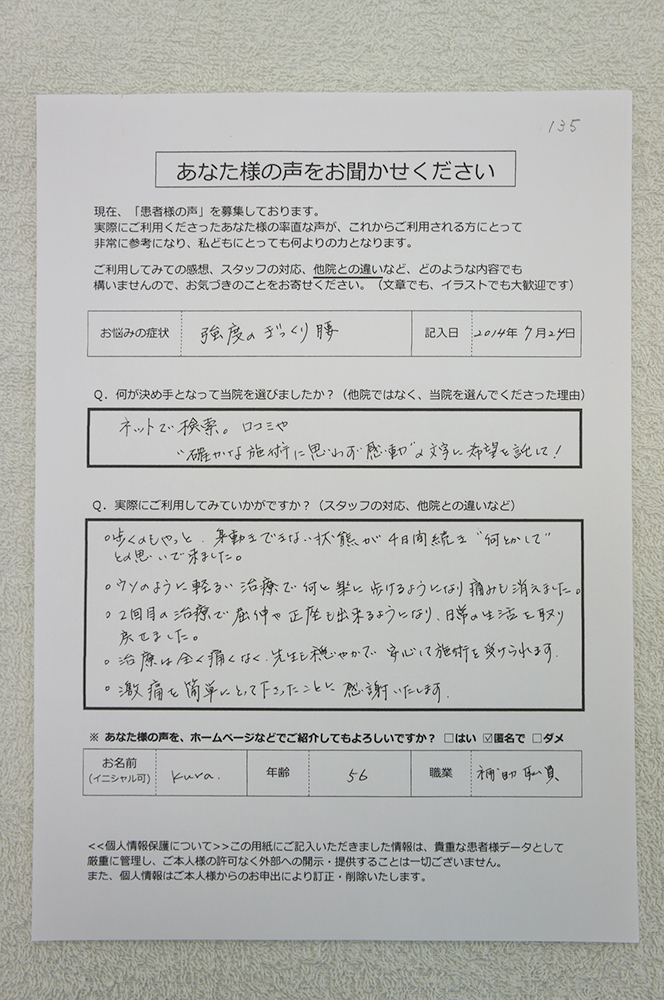 135
あなた様の声をお聞かせください
現在、「患者様の声」を募集しております。
実際にご利用くださったあなた様の率直な声が、これからご利用される方にとって
非常に参考になり、私どもにとっても何よりの力となります。
ご利用してみての感想、スタッフの対応、他院との違いなど、どのような内容でも
構いませんので、お気づきのことをお寄せください。（文章でも、イラストでも大歓迎です）
お悩みの症状 強度のぎっくり腰 記入日 2014年7月24日
Q．何が決め手となって当院を選びましたか？（他院ではなく、当院を選んでくださった理由）
ネットで検索。口コミや
"確かな施術に思わず感動"の文字に希望を託して！
Q．実際にご利用してみていかがですか？（スタッフの対応、他院との違いなど）
○歩くのもやっと、身動きできない状態が4日間続き"何とかして"
との思いで来ました。
○ウソのように軽るい治療で何と楽に歩けるようになり痛みも消えました。
○2回目の治療で屈伸や正座も出来るようになり、日常の生活を取り
戻せました。
○治療は全く痛くなく、先生も穏やかで安心して施術を受けられます。
○激痛を簡単にとって下さったことに感謝いたします。
※ あなた様の声を、ホームページなどでご紹介してもよろしいですか？ □はい ☑匿名で □ダメ
お名前 (イニシャル可) kura. 年齢 56 職業 補助職員
<<個人情報保護について>>この用紙にご記入いただきました情報は、貴重な患者様データとして
厳重に管理し、ご本人様の許可なく外部への開示・提供することは一切ございません。
また、個人情報はご本人様からのお申出により訂正・削除いたします。